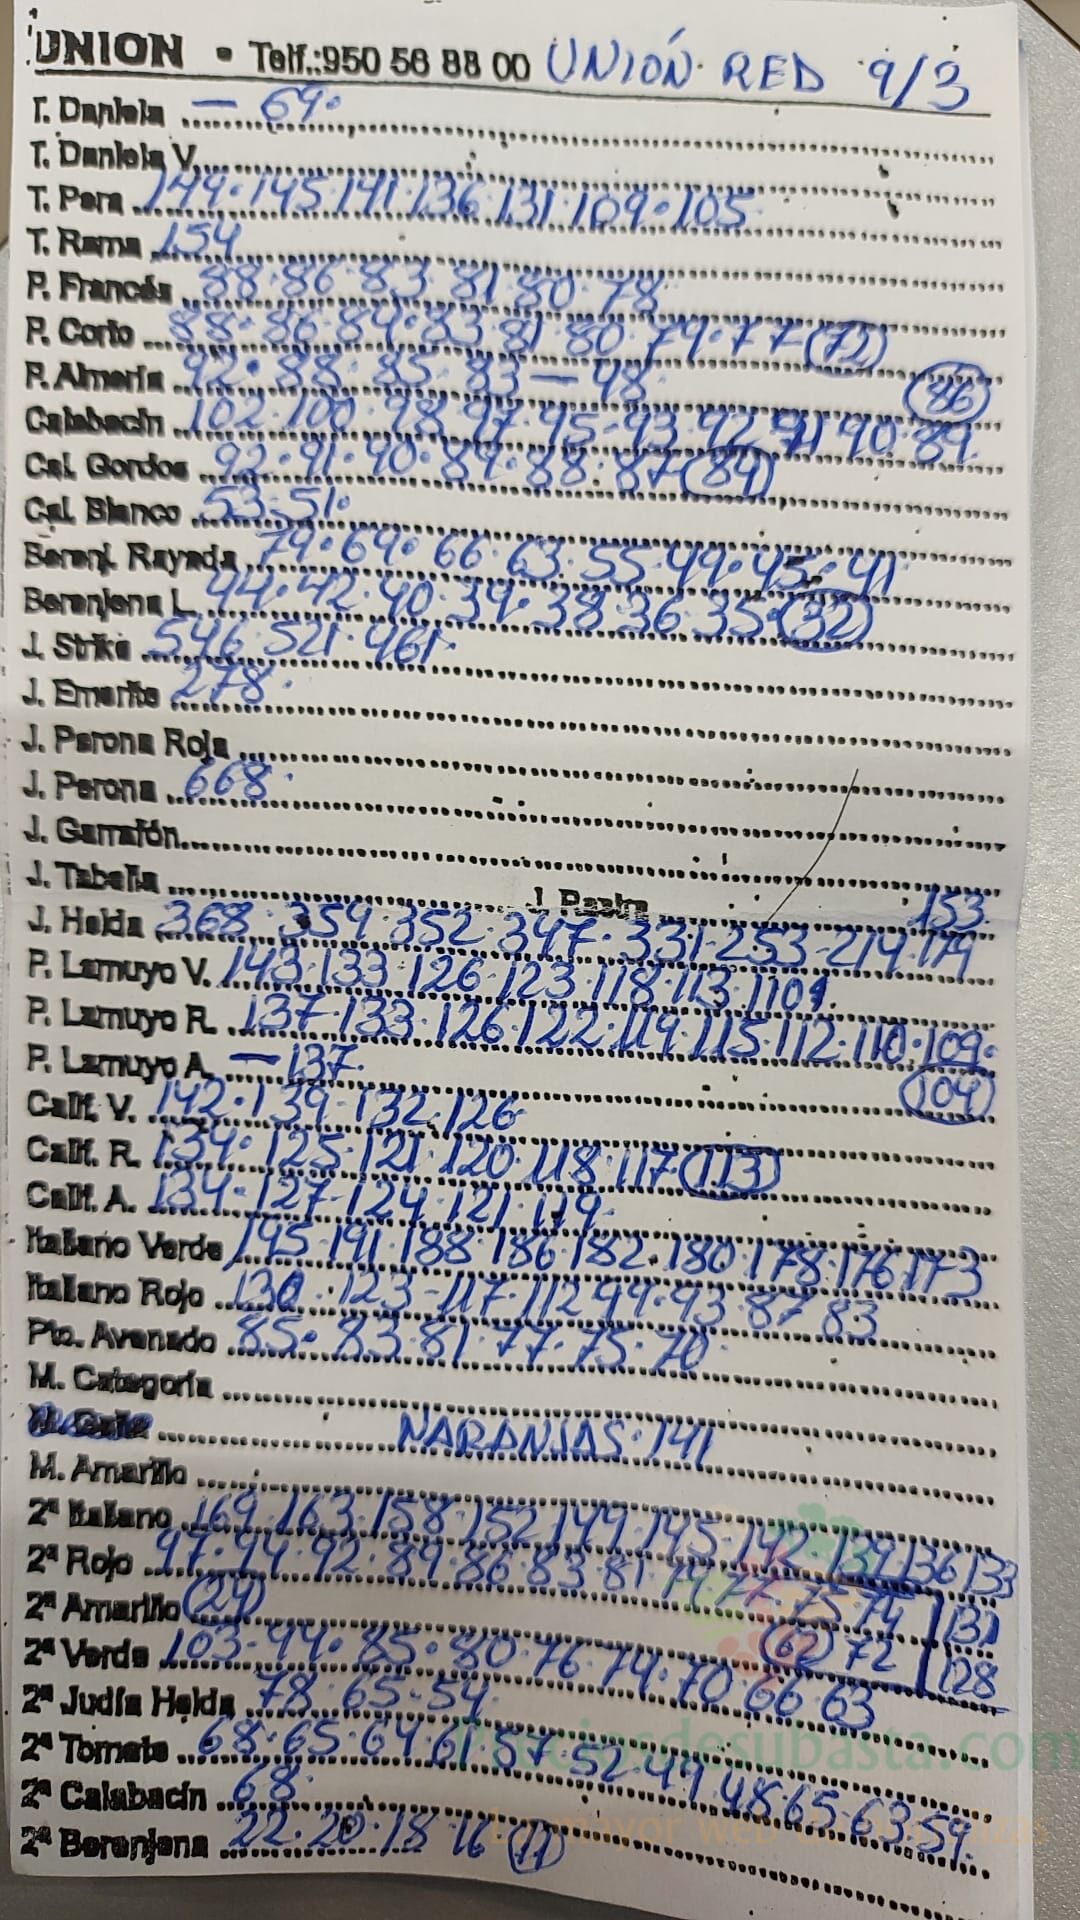 UNION • Telf.:950 56 88 00 UNIÓN RED 9/3
T. Daniela — 69.
T. Daniela V.
T. Pera 149.145.141.136.131.109.105
T. Rama 154
P. Francés 88.86.83.81.80.78
P. Corto 88.86.84.83.81.80.79.77 (72)
P. Almería 92.88.85.83 — 48. (86)
Calabacín 102.100.98.97.95-93.92 91 90.89.
Cal. Gordos 92.91.90.89.88.87 (84)
Cal. Blanco 53.51.
Berenj. Rayada 79.69.66.63.55.49.45.41
Berenjena L. 44.42.40.39.38.36.35.(32)
J. Strike 546.521.461.
J. Emerite 278.
J. Perona Roja
J. Perona 668.
J. Garrafón
J. Tabella J. Rastra 153
J. Helda 368.359.352.347.331-253-214.179
P. Lamuyo V. 143.133.126.123.118.113.1109.
P. Lamuyo R. 137.133.126.122.119.115.112.110.109.
P. Lamuyo A. — 137. (104)
Calif. V. 142.139-132.126
Calif. R. 134.125.121.120.118.117 (113)
Calif. A. 134.127-124.121.119.
Italiano Verde 195.191.188.186.182.180.178.176.173
Italiano Rojo 130.123-117.112 99.93.87 83
Pto. Avanado 85.83.81.77.75.70.
M. Categoría
NARANJAS.141
M. Amarillo
2ª Italiano 169.163.158.152.149.145.142.139.136.133
2ª Rojo 97.94.92.89.86.83.81.79.77.75.74 131
2ª Amarillo (29) (62) 72 128
2ª Verde 103-94.85.80.76.74.70.66.63
2ª Judía Helda 78.65-54.
2ª Tomate 68.65.64.61.57.52.49.48.65.63.59.
2ª Calabacín 68.
2ª Berenjena 22.20.18.16 (11)
Preciosdesubasta.com
La mayor web de